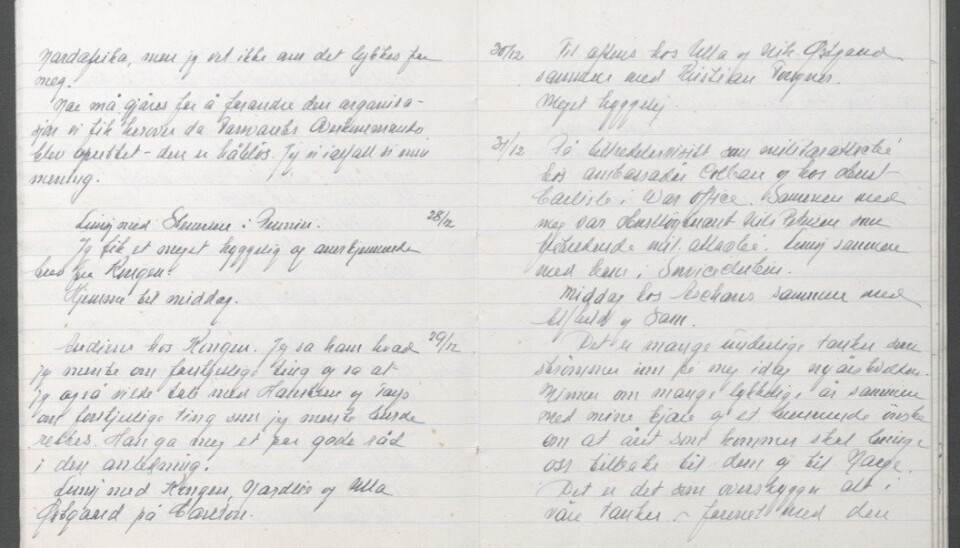 Nordafrika, men jeg vet ikke om det lykkes for
meg.
Noe må gjøres for å forandre den organisa-
sjon vi fik herover da Forsvarets Overkommando
blev oprettet - den er håpløs. Jeg vil iallfall si min
mening.
28/12
Lunsj med i
Jeg fik et meget hyggelig og anerkjennende
brev fra Kongen.
Hjemme til middag.
29/12
Audiens hos Kongen. Jeg sa ham hvad
jeg mente om forskjellige ting og sa at
jeg også vilde tale med Hansteen og
om forskjellige ting som jeg mente burde
rettes. Han ga meg et par gode råd
i den anledning.
Lunsj med Kongen, Nordlie og Ulla
Østgaard på Carlton.
30/12
Til aftens hos Ulla og Nik Østgaard
sammen med Kristian
Meget hyggelig.
31/12
På tiltredelsesvisitt som militærattaché
hos ambassadør Colban og hos Oberst
Carlisle i War Office. Sammen med
meg var Oberstløytnant Nils Petersen som
fratredende mil. attaché. Lunsj sammen
med ham i
Middag hos sammen med
og Sam.
Det er mange underlige tanker som
strømmer inn på mig idag nyårskvelden.
Minner om mange lykkelige år sammen
med mine kjære og et brennende ønske
om at året som kommer skal bringe
oss tilbake til dem og til Norge.
Det er det som overskygger alt i
våre tanker - forenet med den